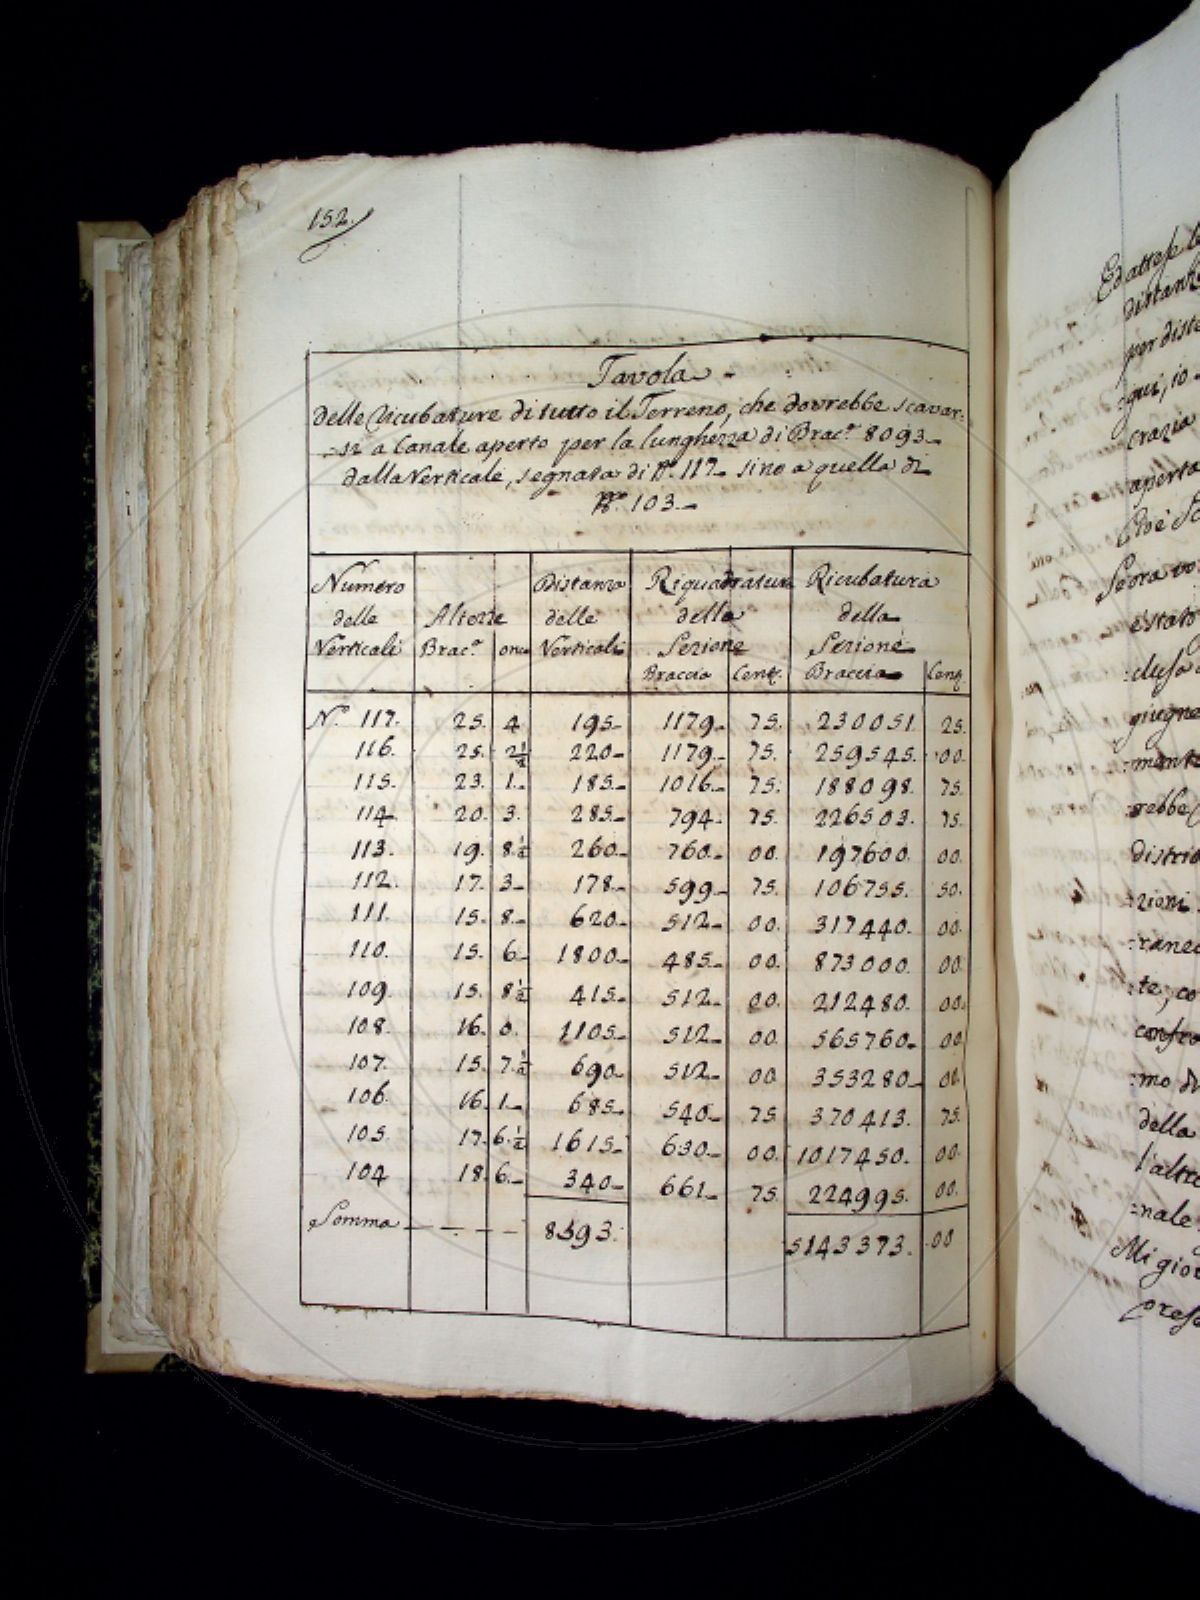 152.
Tavola
delle Ricubature di tutto il Terreno, che dovrebbe scavar:
:si a Canale aperto per la lunghezza di Brac.ª 8093
dalla Verticale, segnata di Nº. 117 sino a quella di
Nº. 103.
Numero delle Verticali | Altezze Brac.ª | once | Distanza delle Verticali | Riquadratura della Sezione Braccia | Cent. | Ricubatura della Sezione Braccia | Cent.
Nº. 117. 25. 4 195 1179 75. 230051. 25.
116. 25. 2½ 220 1179. 75. 259545. 00.
115. 23. 1. 185 1016 75. 188098. 75.
114 20. 3. 285 794 75. 226503. 75.
113. 19. 8½ 260 760 00. 197600. 00.
112. 17. 3 178 599 75. 106755. 50.
111. 15. 8 620 512 00. 317440. 00.
110. 15. 6 1800 485 00. 873000. 00.
109. 15. 8½ 415 512 00. 212480. 00.
108. 16. 0. 1105 512 00. 565760 00
107. 15. 7½ 690 512 00 353280 00.
106. 16. 1 685 540 75. 370413. 75.
105. 17. 6½ 1615 630 00. 1017450. 00.
104 18. 6. 340 661 75. 224995. 00.
Somma 8593. 5143373. 00
Ed attese
distanz
per dist
:qui, io
crazia
aperto
Cioè
Seora
estato
:clusa
giugne
:mente
:rebbe
distrib
:zioni
:ranee
:te, co
confro
:mo di
della
l'altr
:nale
Mi gio
presa